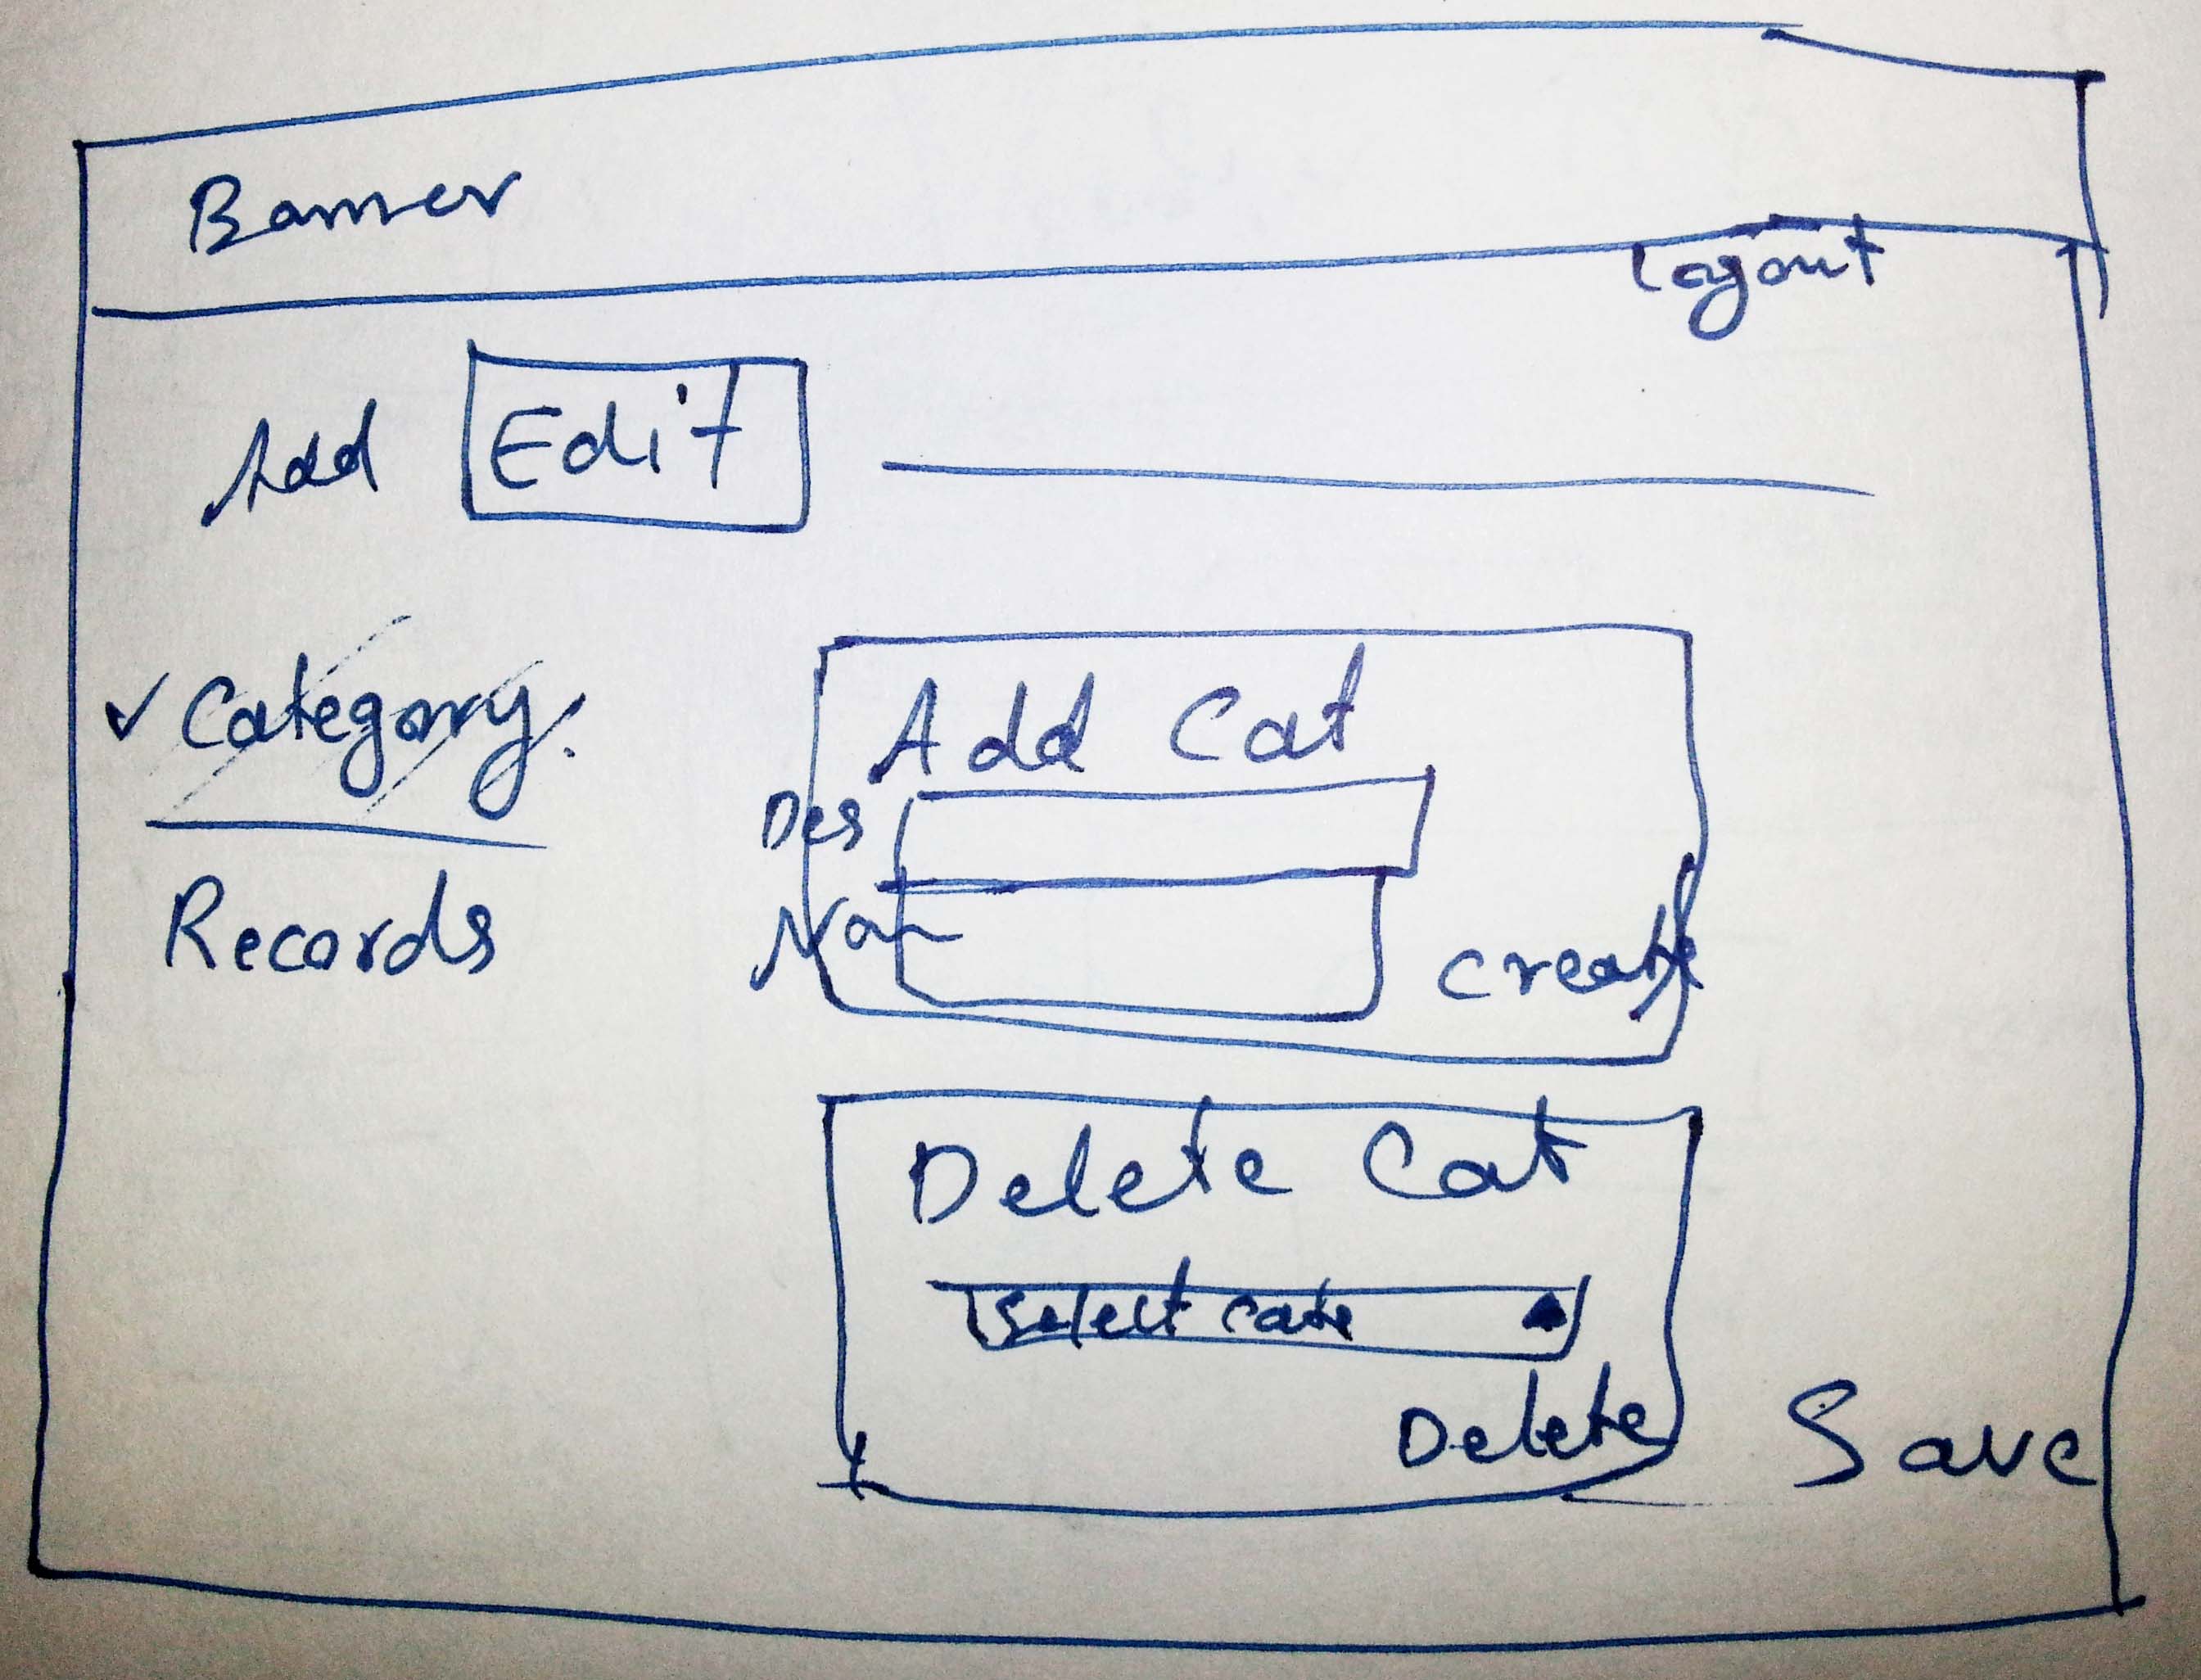 Banner
Logout
Add Edit
Category.
Records
Add Cat
Des
Na
Create
Delete Cat
Select cate
Delete
Save